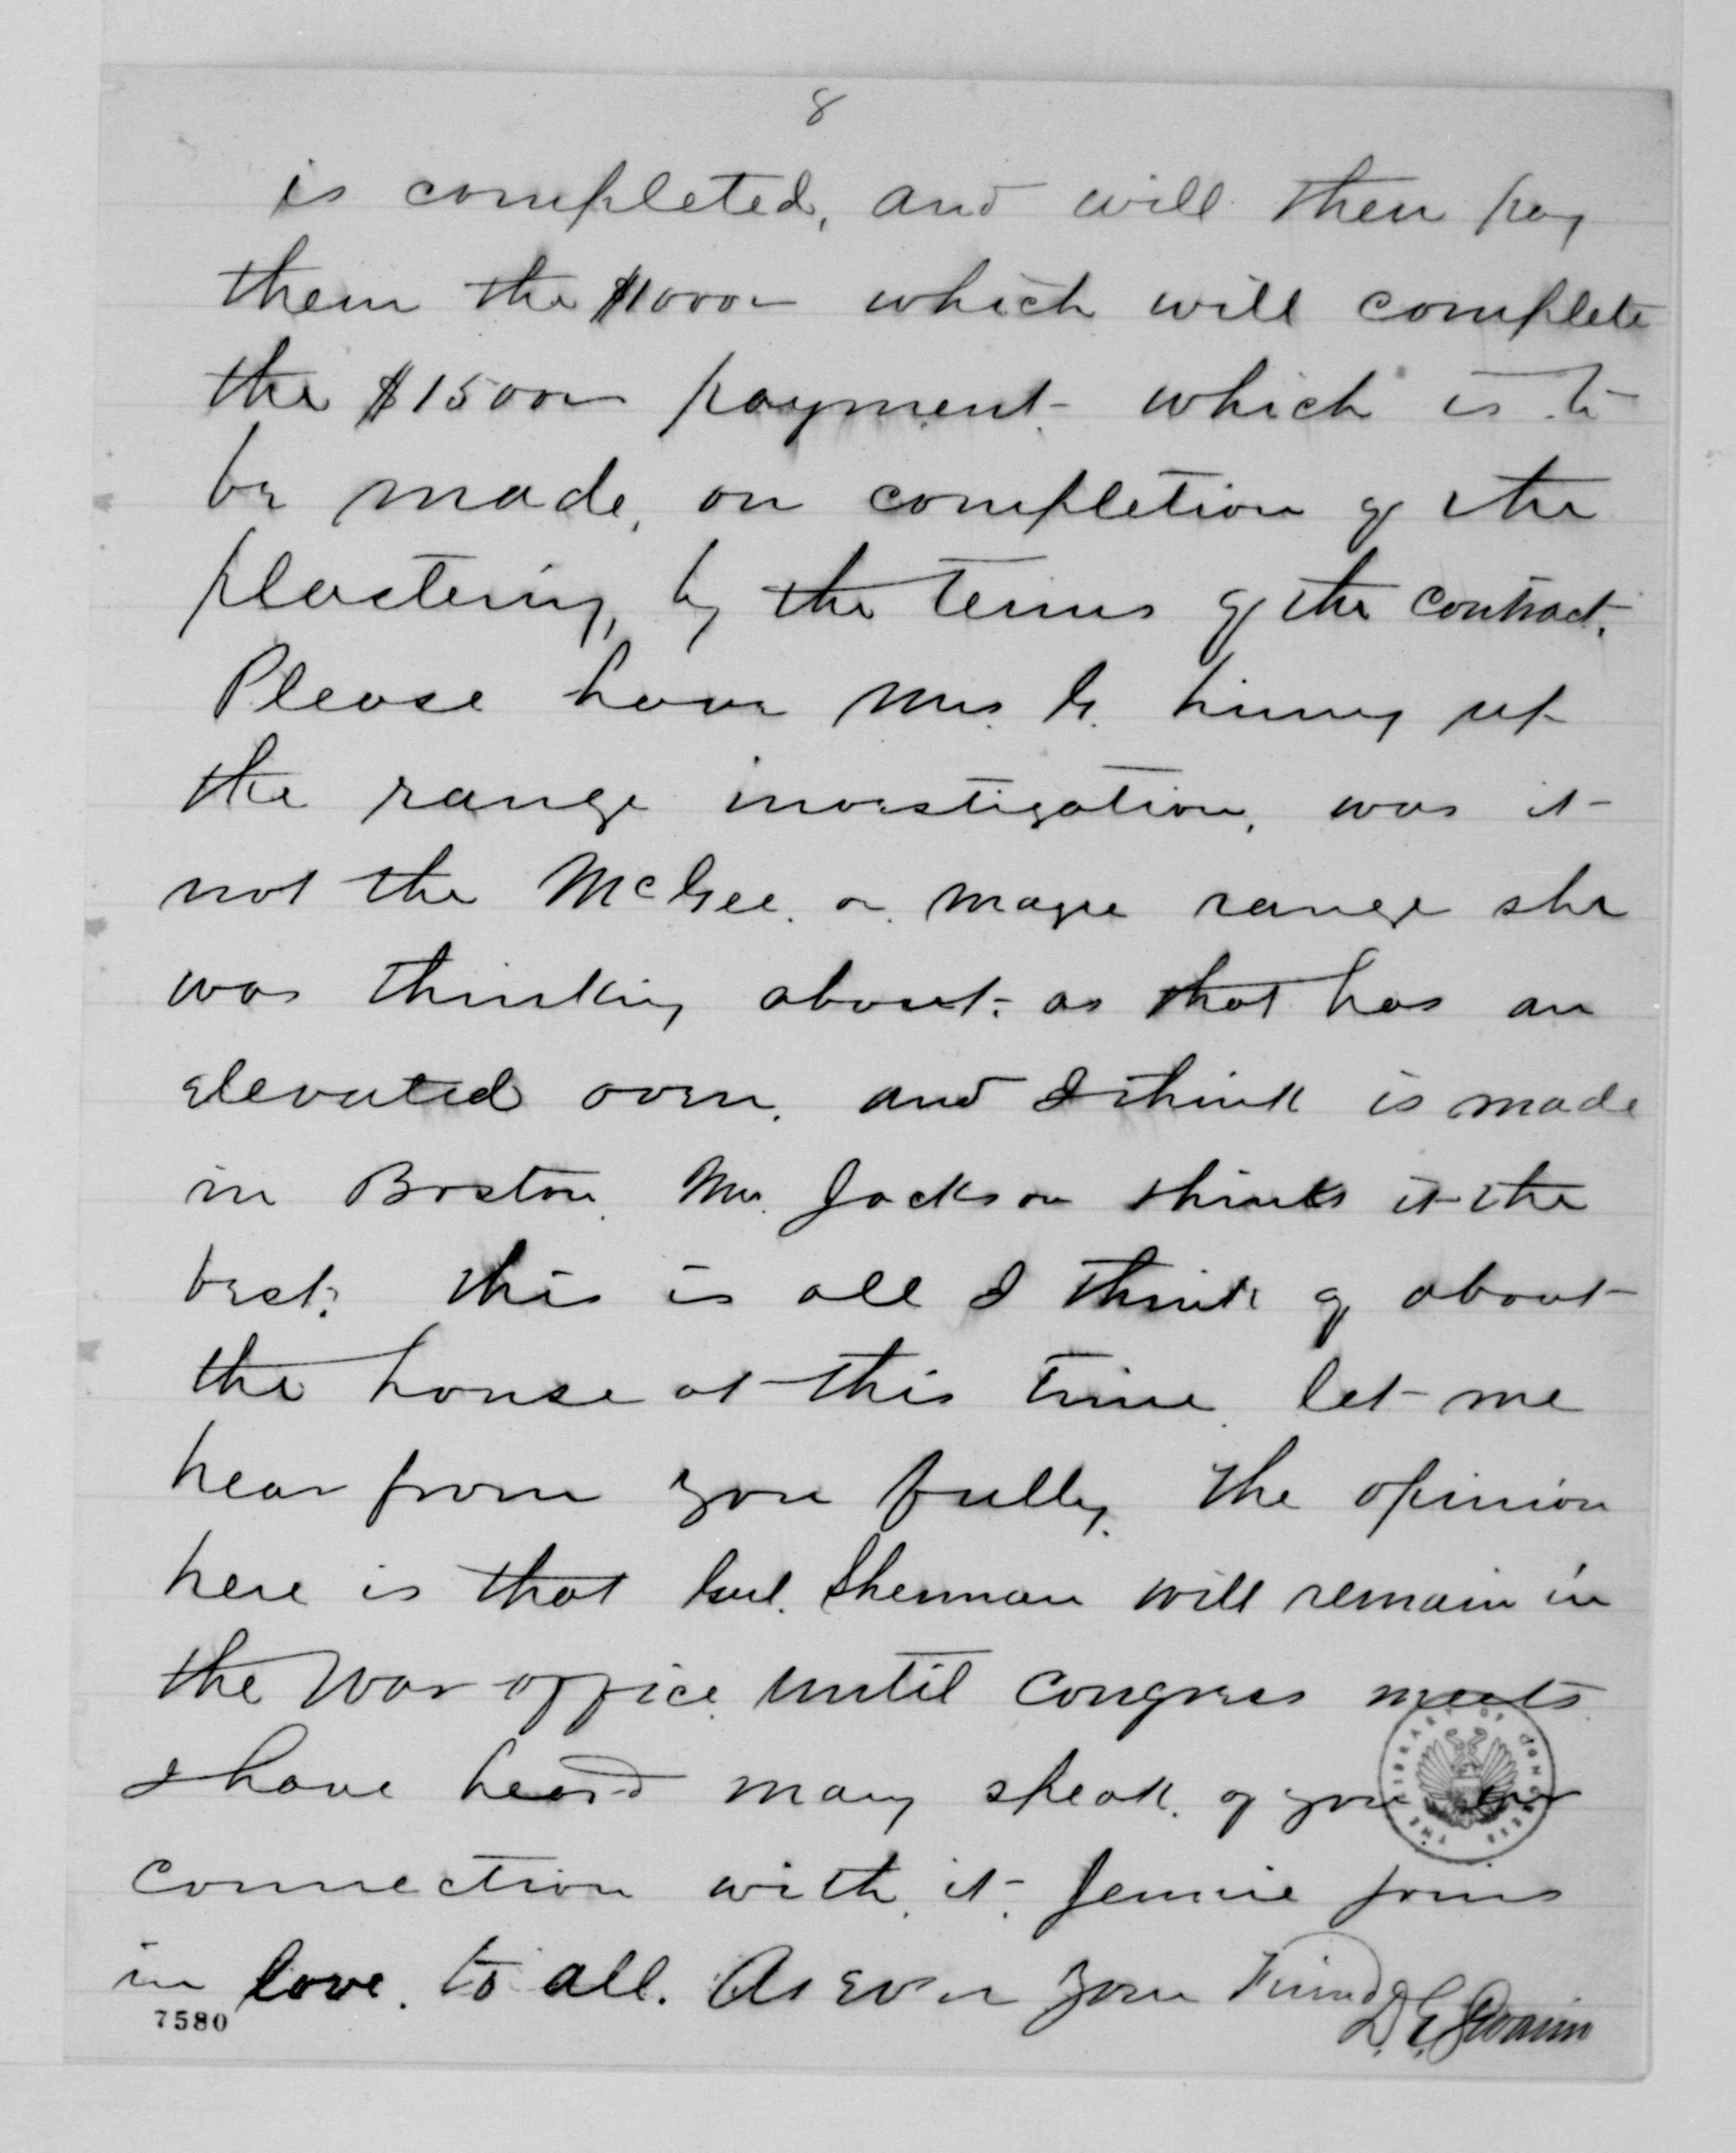 8
is completed, and will then pay
them the $1000 which will complete
the $1500 payment which is to
be made, on completion of the
plastering, by the terms of the contract.
Please have Mrs. G. hurry up
the range investigation, was it
not the McGee. or Magee range she
was thinking about. as that has an
elevated oven. and I think is made
in Boston. Mr. Jackson thinks it the
best. this is all I think of about
the house at this time. let me
hear from you fully. The opinion
here is that Genl. Sherman will remain in
the War office until Congress meets.
I have heard many speak of you in
connection with it. Jennie joins
in love. to all. As ever your Friend
D. G. Swaim
THE LIBRARY OF CONGRESS
7580